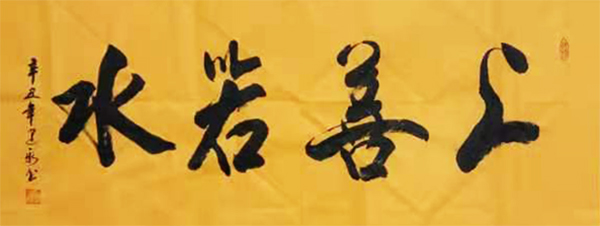 上善若水
辛丑年